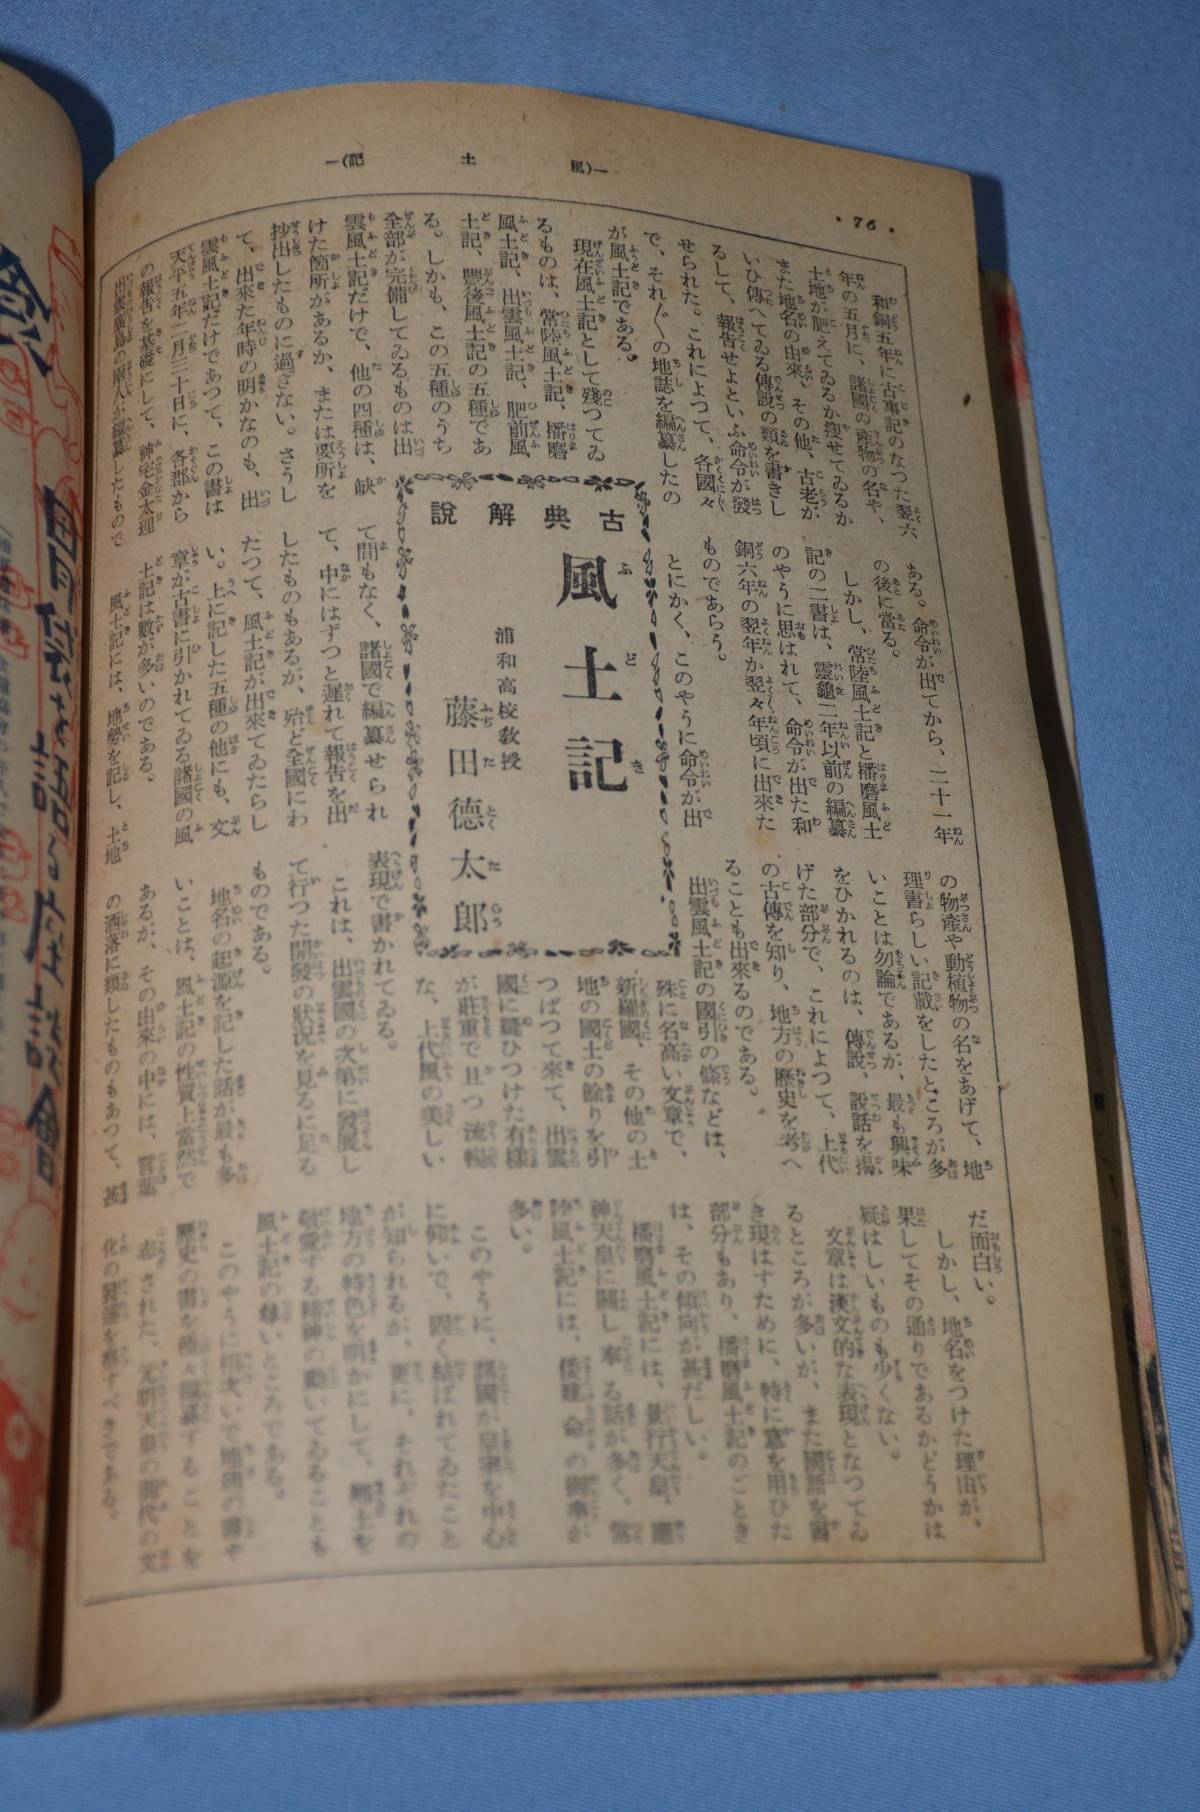 ・76・
―(風土記)―
古典解説
風土記
浦和高校教授
藤田徳太郎
和銅五年に古事記のなつた翌六
年の五月に、諸國の産物の名や、
土地が肥えてゐるか瘦せてゐるか
また地名の由來、その他、古老が
いひ傳へてゐる傳說の類を書きし
るして、報告せよといふ命令が發
せられた。これによつて、各國々
で、それ〴〵の地誌を編纂したの
が風土記である。
現在風土記として殘つてゐ
るものは、常陸風土記、播磨
風土記、出雲風土記、肥前風
土記、豐後風土記の五種であ
る。しかも、この五種のうち
全部が完備してゐるものは出
雲風土記だけで、他の四種は、缺
けた箇所があるか、または要所を
抄出したものに過ぎない。さうし
て、出來た年時の明かなのも、出
雲風土記だけであつて、この書は
天平五年二月三十日に、各郡から
の報告を基礎にして、神宅金太理
出雲廣島の兩人が編纂したもので
ある。命令が出てから、二十一年
の後に當る。
しかし、常陸風土記と播磨風土
記の二書は、靈龜二年以前の編纂
のやうに思はれて、命令が出た和
銅六年の翌年か翌々年頃に出來た
ものであらう。
とにかく、このやうに命令が出
て間もなく、諸國で編纂せられ
て、中にはずつと遲れて報告を出
したものもあるが、殆ど全國にわ
たつて、風土記が出來てゐたらし
い。上に記した五種の他にも、文
章が古書に引かれてゐる諸國の風
土記は數が多いのである。
風土記には、地勢を記し、土地
の物産や、動植物の名をあげて、地
理書らしい記載をしたところが多
いことは勿論であるが、最も興味
をひかれるのは、傳說、說話を揭
げた部分で、これによつて、上代
の古傳を知り、地方の歷史を考へ
ることも出來るのである。
出雲風土記の國引の條などは、
殊に名高い文章で、
新羅國、その他の土
地の國土の餘りを引
つぱつて來て、出雲
國に縫ひつけた有樣
が莊重で且つ流暢
な、上代風の美しい
表現で書かれてゐる。
これは、出雲國の次第に發展し
て行つた開發の狀況を見るに足る
ものである。
地名の起源を記した話が最も多
いことは、風土記の性質上當然で
あるが、その由來の中には、言葉
の洒落に類したものもあつて、甚
だ面白い。
しかし、地名をつけた理由が、
果してその通りであるかどうかは
疑はしいものも少くない。
文章は漢文的な表現となつてゐ
るところが多いが、また國語を書
き現はすために、特に意を用ひた
部分もあり、播磨風土記のごとき
は、その傾向が甚だしい。
播磨風土記には、景行天皇、應
神天皇に關し奉る話が多く、常
陸風土記には、倭建命の御事が
多い。
このやうに、諸國が皇室を中心
に仰いで、固く結ばれてゐたこと
が知られるが、更に、それぞれの
地方の特色を明かにして、鄉土を
敬愛する精神の動いてゐることも
風土記の尊いところである。
このやうに相次いで地理の書や
歷史の書を種々編纂することを
志された、元明天皇の御代の文
化の發達を察すべきである。
を語る座談會